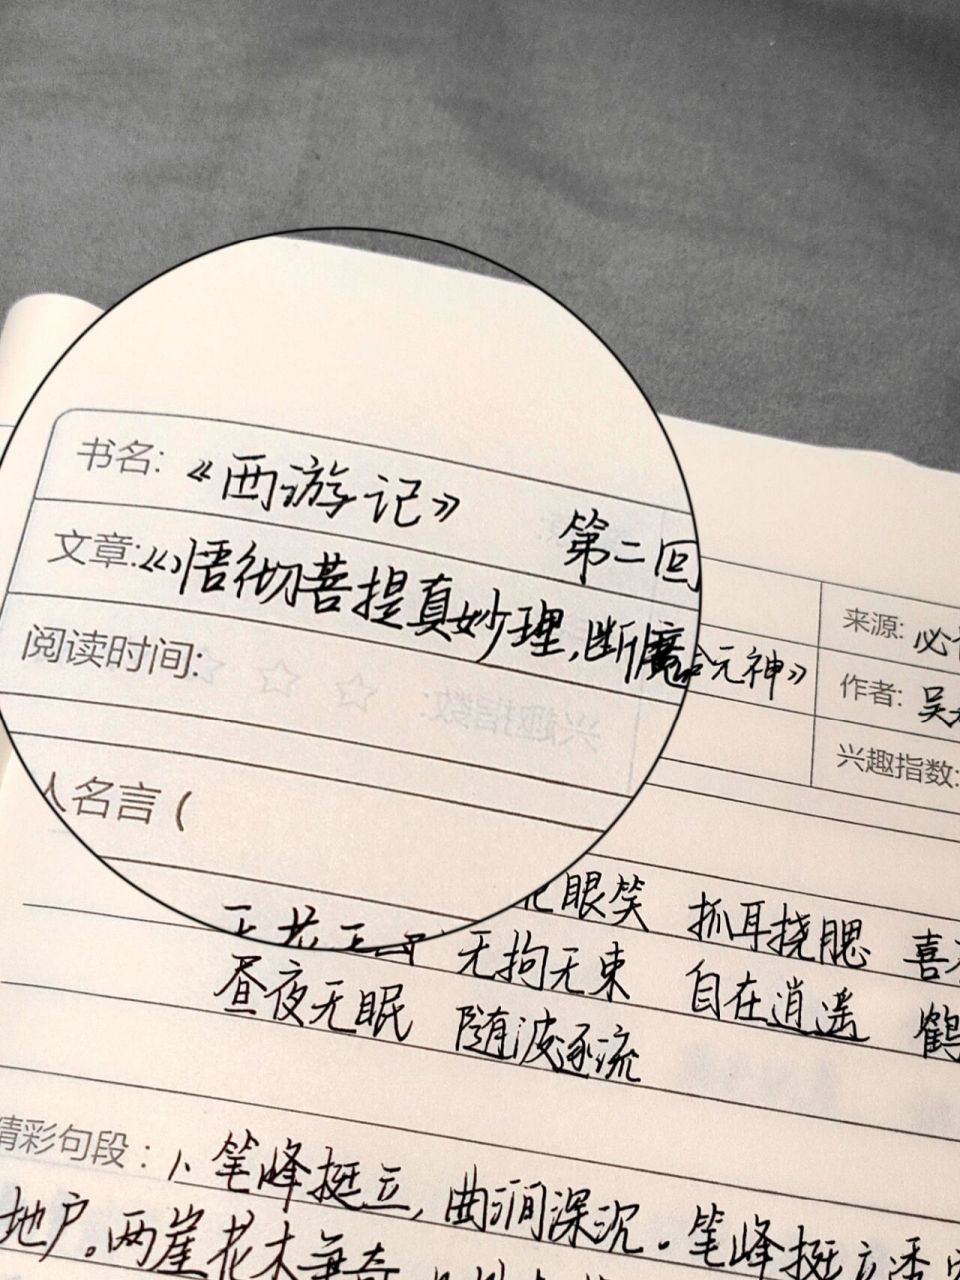 书名: 《西游记》 第二回
文章:《悟彻菩提真妙理,断魔 元神》
来源: 必
阅读时间:
作者: 吴
兴趣指数:
人名言(
眼笑 抓耳挠腮 喜
无拘无束 自在逍遥 鹤
昼夜无眠 随波逐流
精彩句段: 1、笔峰挺立,曲涧深沉。笔峰挺立透
地户。两崖花木争奇